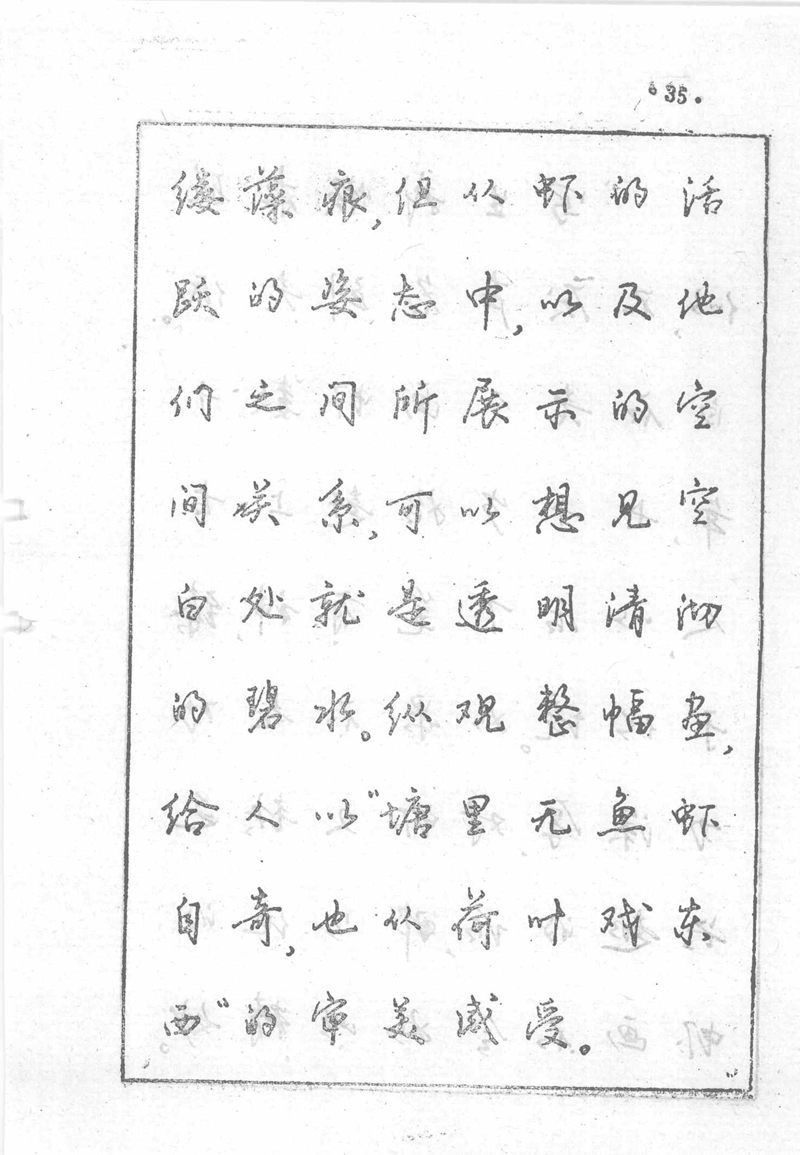 ·35·
缕藻痕，但从虾的活
跃的姿态中，以及他
们之间所展示的空
间关系，可以想见空
白处就是透明清沏
的碧水。纵观整幅画，
给人以“塘里无鱼虾
自奇，也从荷叶戏东
西”的审美感受。